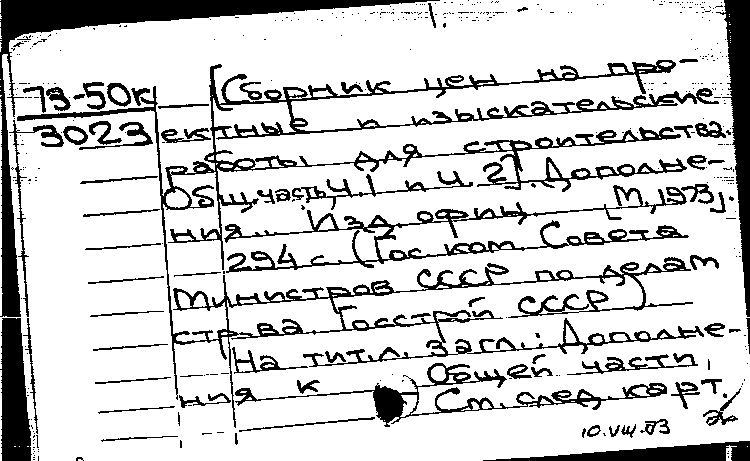 73-50к
3023
[Сборник цен на про-
ектные и изыскательские
работы для строительства.
Общ. часть, ч. 1 и ч. 2]. Дополне-
ния.. Изд. офиц. [М., 1973].
294 с. (Гос. ком. Совета
Министров СССР по делам
стр-ва. Госстрой СССР)
На тит. л. загл.: Дополне-
ния к Общей части,
См. след. карт.
10.VIII.73